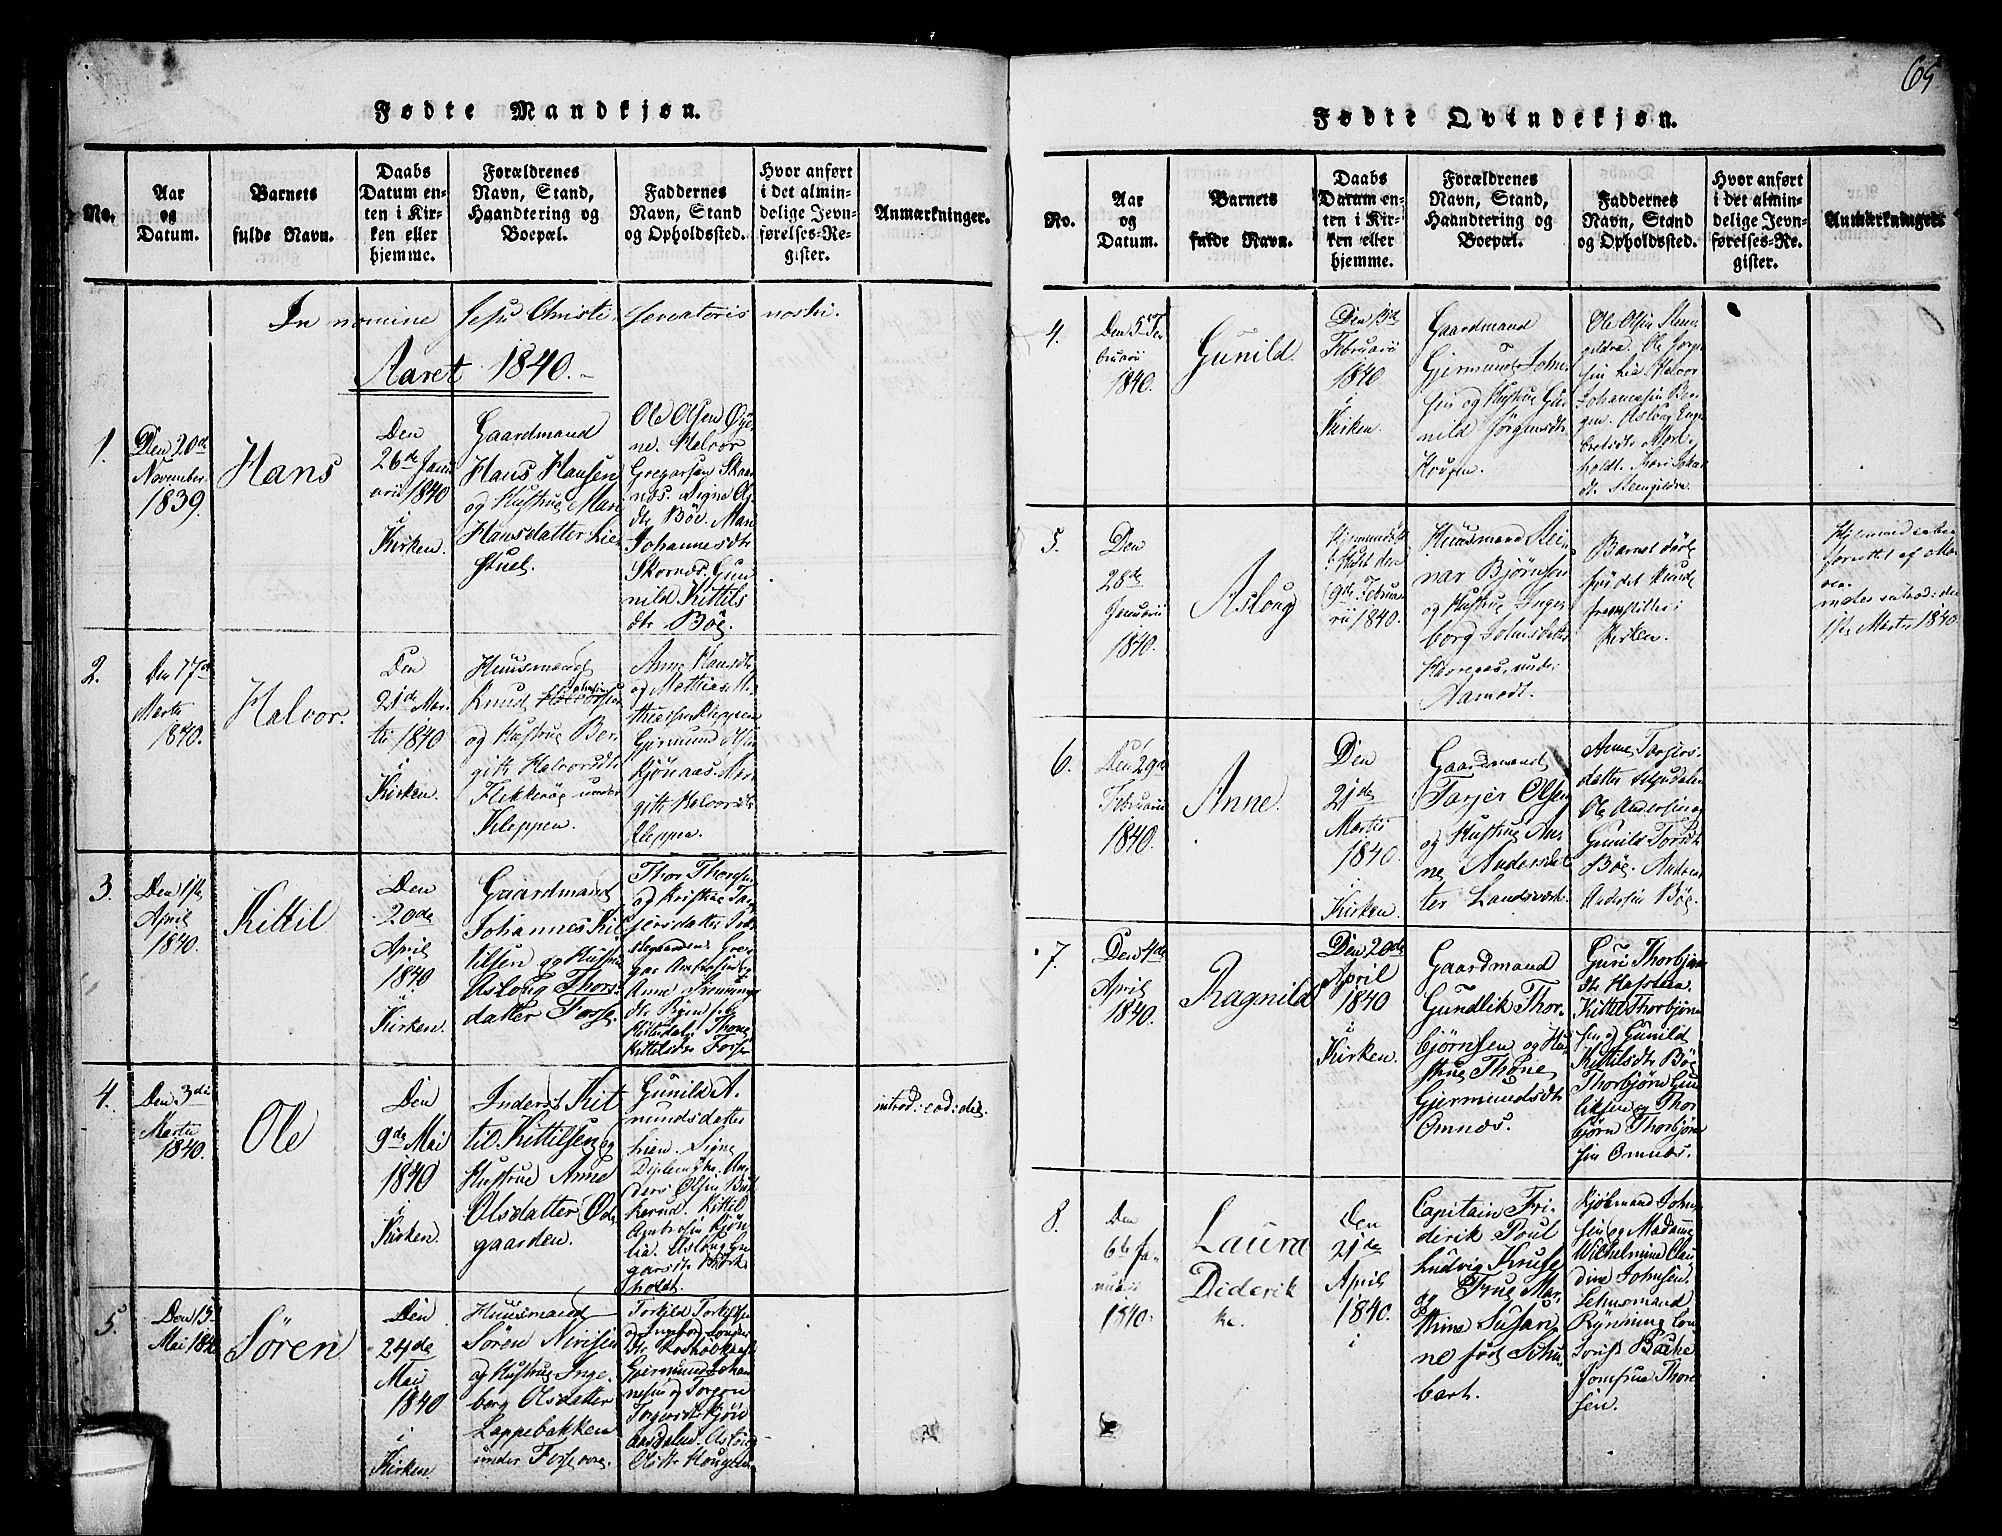 65
Fødte Mandkjøn.
No.
Aar
og
Datum.
Barnets
fulde Navn.
Daabs
Datum en-
ten i Kir-
ken eller
hjemme.
Forældrenes
Navn, Stand,
Haandtering og
Boepæl.
Faddernes
Navn, Stand
og Opholdssted.
Hvor anført
i det almin-
delige Jevn-
førelses-Re-
gister.
Anmærkninger.
In nomine Jesu Christi, servatoris nostri.
Aaret 1840.
1.
Den 20de
November
1839.
Hans
Den
26de Janu
arii 1840
i
Kirken.
Gaardmand
Hans Hansen
og Hustrue Mari
Hansdatter Lie-
stuel.
Ole Olsen Øye
ne. Halvor
Gregarsen Skaar
næs. Signe
dtr. Böe. Mari
Johannesdtr
Skornæs. Gun
nild Kittils
dtr Böe.
2.
Den 17de
Martii
1840.
Halvor.
Den
21de Mar
tii 1840
i
Kirken.
Huusmand
Knud Johansen
og Hustrue Ber
gith Halvorsdtr
Flekkerög under
Kleppen.
Anne Hansdtr
og Matthias Mat
thiesen Kleppen
Gjermund Olsen
Kjönaas. Ber
gith Halvorsdtr
Kleppen.
3.
Den 1ste
April
1840.
Kittil
Den
20de
April
1840
i
Kirken.
Gaardmand
Johannes Kit
tilsen og Hustrue
Aslaug Thors-
datter Forse.
Thor Thorsen
og Kristine Tar
jersdatter
Gre
gar Ambrosen og
Anne
dtr
Thone
Kittilsdtr Forse
4.
Den 3die
Martii
1840.
Ole
Den
9de Mai
1840
i
Kirken.
Inderst Kit
til Kittilsen og
Hustrue Anne
Olsdatter Ode
gaarden.
Gunild A-
mundsdatter
Lien. Signe
An
ders Olsen Buk
herud. Kittil
Ambrosen Kjön
lia. Aslaug Gre
garsdtr Birk
holdt.
introd: eod: die.
5.
Den 15de
Mai 1840
Sören
Den
24de
Mai
1840
i
Kirken
Huusmand
Sören Nirisen
og Hustrue Inge-
borg Olsdatter
Loppebakken
under Forse
Torkild Torkilsen
og Ingeborg
dtr
Gjermund Johan
nesen og Torgon
Torjersdtr Kjön
aasdalen. Aslaug
Olsdtr Haugen
Fødte Qvindekjøn.
No.
Aar
og
Datum.
Barnets
fulde Navn.
Daabs
Datum en-
ten i Kir-
ken eller
hjemme.
Forældrenes
Navn, Stand,
Haandtering og
Boepæl.
Faddernes
Navn, Stand
og Opholdssted.
Hvor anført
i det almin-
delige Jevn-
førelses-Re-
gister.
Anmærkninger.
4.
Den 5te Fe
bruarii
1840.
Gunild.
Den
Februarii
1840
i
Kirken.
Gaardmand
Gjermund Johne
sen og Hustrue Gu
nild Jörgensdtr
Hougen.
Ole Olsen Steen
gildre. Ole Jorgen
sen Lia Halvor
Johannesen
Aslaug Enge
bretsdtr Mörk
holdt. Kari
dtr. Steengildre.
5.
Den
28de
Januarii
1840.
Aslaug
Hjemmedöbt
den
9de Februa
rii 1840.
Huusmand Rei
nar Björnsen
og Hustrue Inge
borg Johnsdatter
under
Aamodt.
Barnet döde
før det kunde
fremstilles i
Kirken.
Hjemmedaaben
forrettet af
introd: den
Martii 1840.
6.
Den 29de
Februarii
1840.
Anne.
Den
21de
Martii
1840.
i
Kirken.
Gaardmand
Tarjer Olsen
og Hustrue An
ne Andersdat
ter Landsverk.
Anne Tarjers-
datter
Ole Andersen og
Gunild Torsdtr
Böe. Anders
Andersen Böe.
7.
Den 4de
April
1840.
Ragnild
Den 20de
April
1840
i
Kirken.
Gaardmand
Gundlik Thor-
björnsen og Hu
strue Thone
Gjermundsdtr
Omnæs.
Guri Thorbjörns
dtr Hafsteen.
Kittil Thorbjörn
sen og Gunild
Kittilsdtr Böe
Thorbjörn Gun
liksen og Thor
björn Thorbjörn
sen Omnæs.
8.
Den
6te Ja-
nuarii
1840.
Laura
Diderik
ke.
Den
21de
April
1840.
i
Capitain Fri
derik Poul
Ludvig Kruse
og Frue Mar
thine Susan
ne født Schu-
bart.
Kjøbmand John
sen og Madame
Wilhelmine Clau
dine Johnsen.
Lehnsmand
Rynning
Bache
Jomfrue Thor
sen.